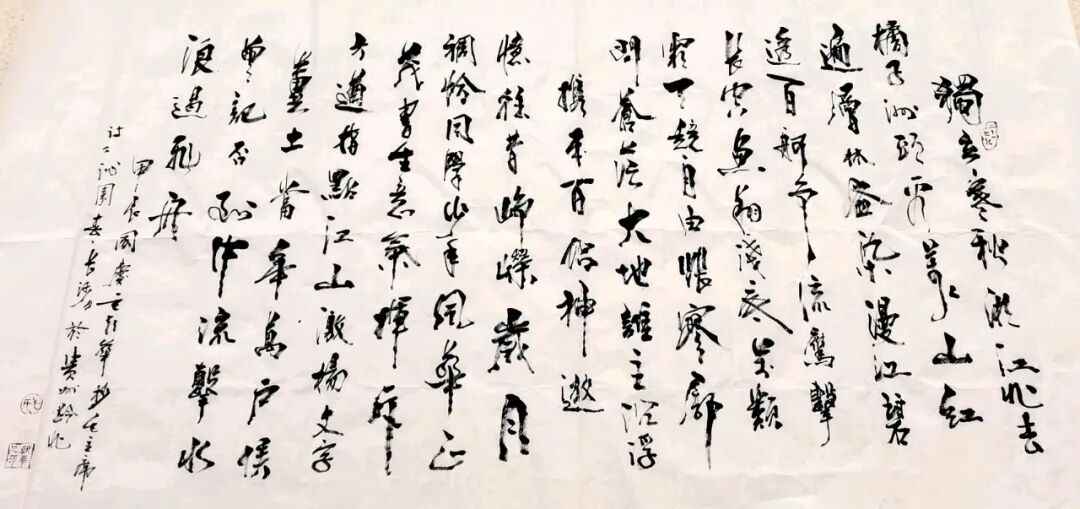 獨立寒秋湘江北去
橘子洲頭看萬山紅
遍層林盡染漫江碧
透百舸爭流鷹擊
長空魚翔淺底萬類
霜天競自由悵寥廓
問蒼茫大地誰主沉浮
攜來百侶
憶往昔崢嶸歲月
稠恰同學少年風華正
茂書生意氣揮斥
方遒指點江山激揚文字
糞土當年萬户侯
曾記否到中流擊水
浪遏飛舟
甲辰國慶抄毛主席
詩詞沁園春長沙於貴州